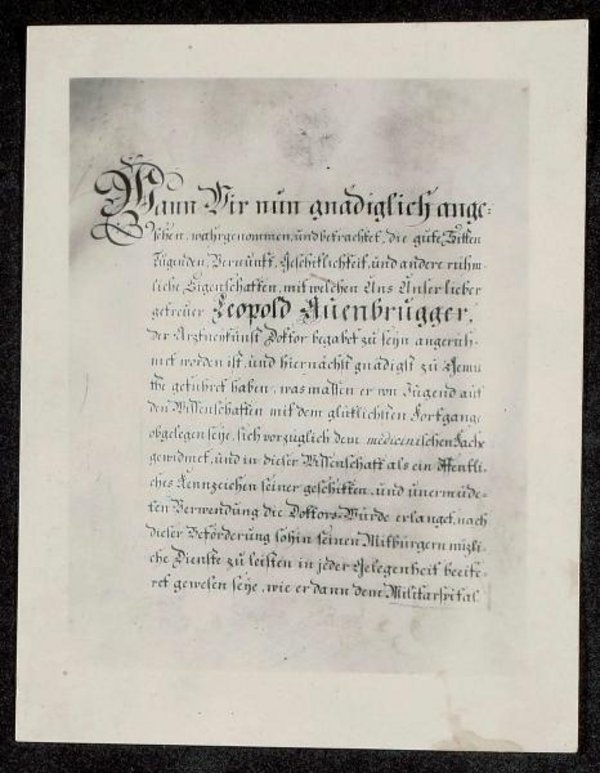 Wann Wir nun gnädiglich ange=
sehen, wahrgenommen, und betrachtet, die gute Sitten
Tugenden, Vernunft, Geschiklichkeit, und andere rühm-
liche Eigenschaften, mit welchen Uns Unser lieber
getreuer Leopold Auenbrugger,
der Arztneykunst Doktor begabet zu seyn angerüh-
met worden ist, und hiernächst gnädigst zu Gemü
the geführet haben, was massen er von Jugend auf
den Wissenschaften mit dem glüklichsten Fortgange
obgelegen seye, sich vorzüglich dem medicinischen Fache
gewidmet, und in dieser Wissenschaft als ein öffentli-
ches Kennzeichen seiner geschikten, und unermüde-
ten Verwendung die Doktors-Würde erlanget, nach
dieser Beförderung sohin seinen Mitbürgern nüzli-
che Dienste zu leisten in jeder Gelegenheit beeife-
ret gewesen seye, wie er dann dem Militarspital